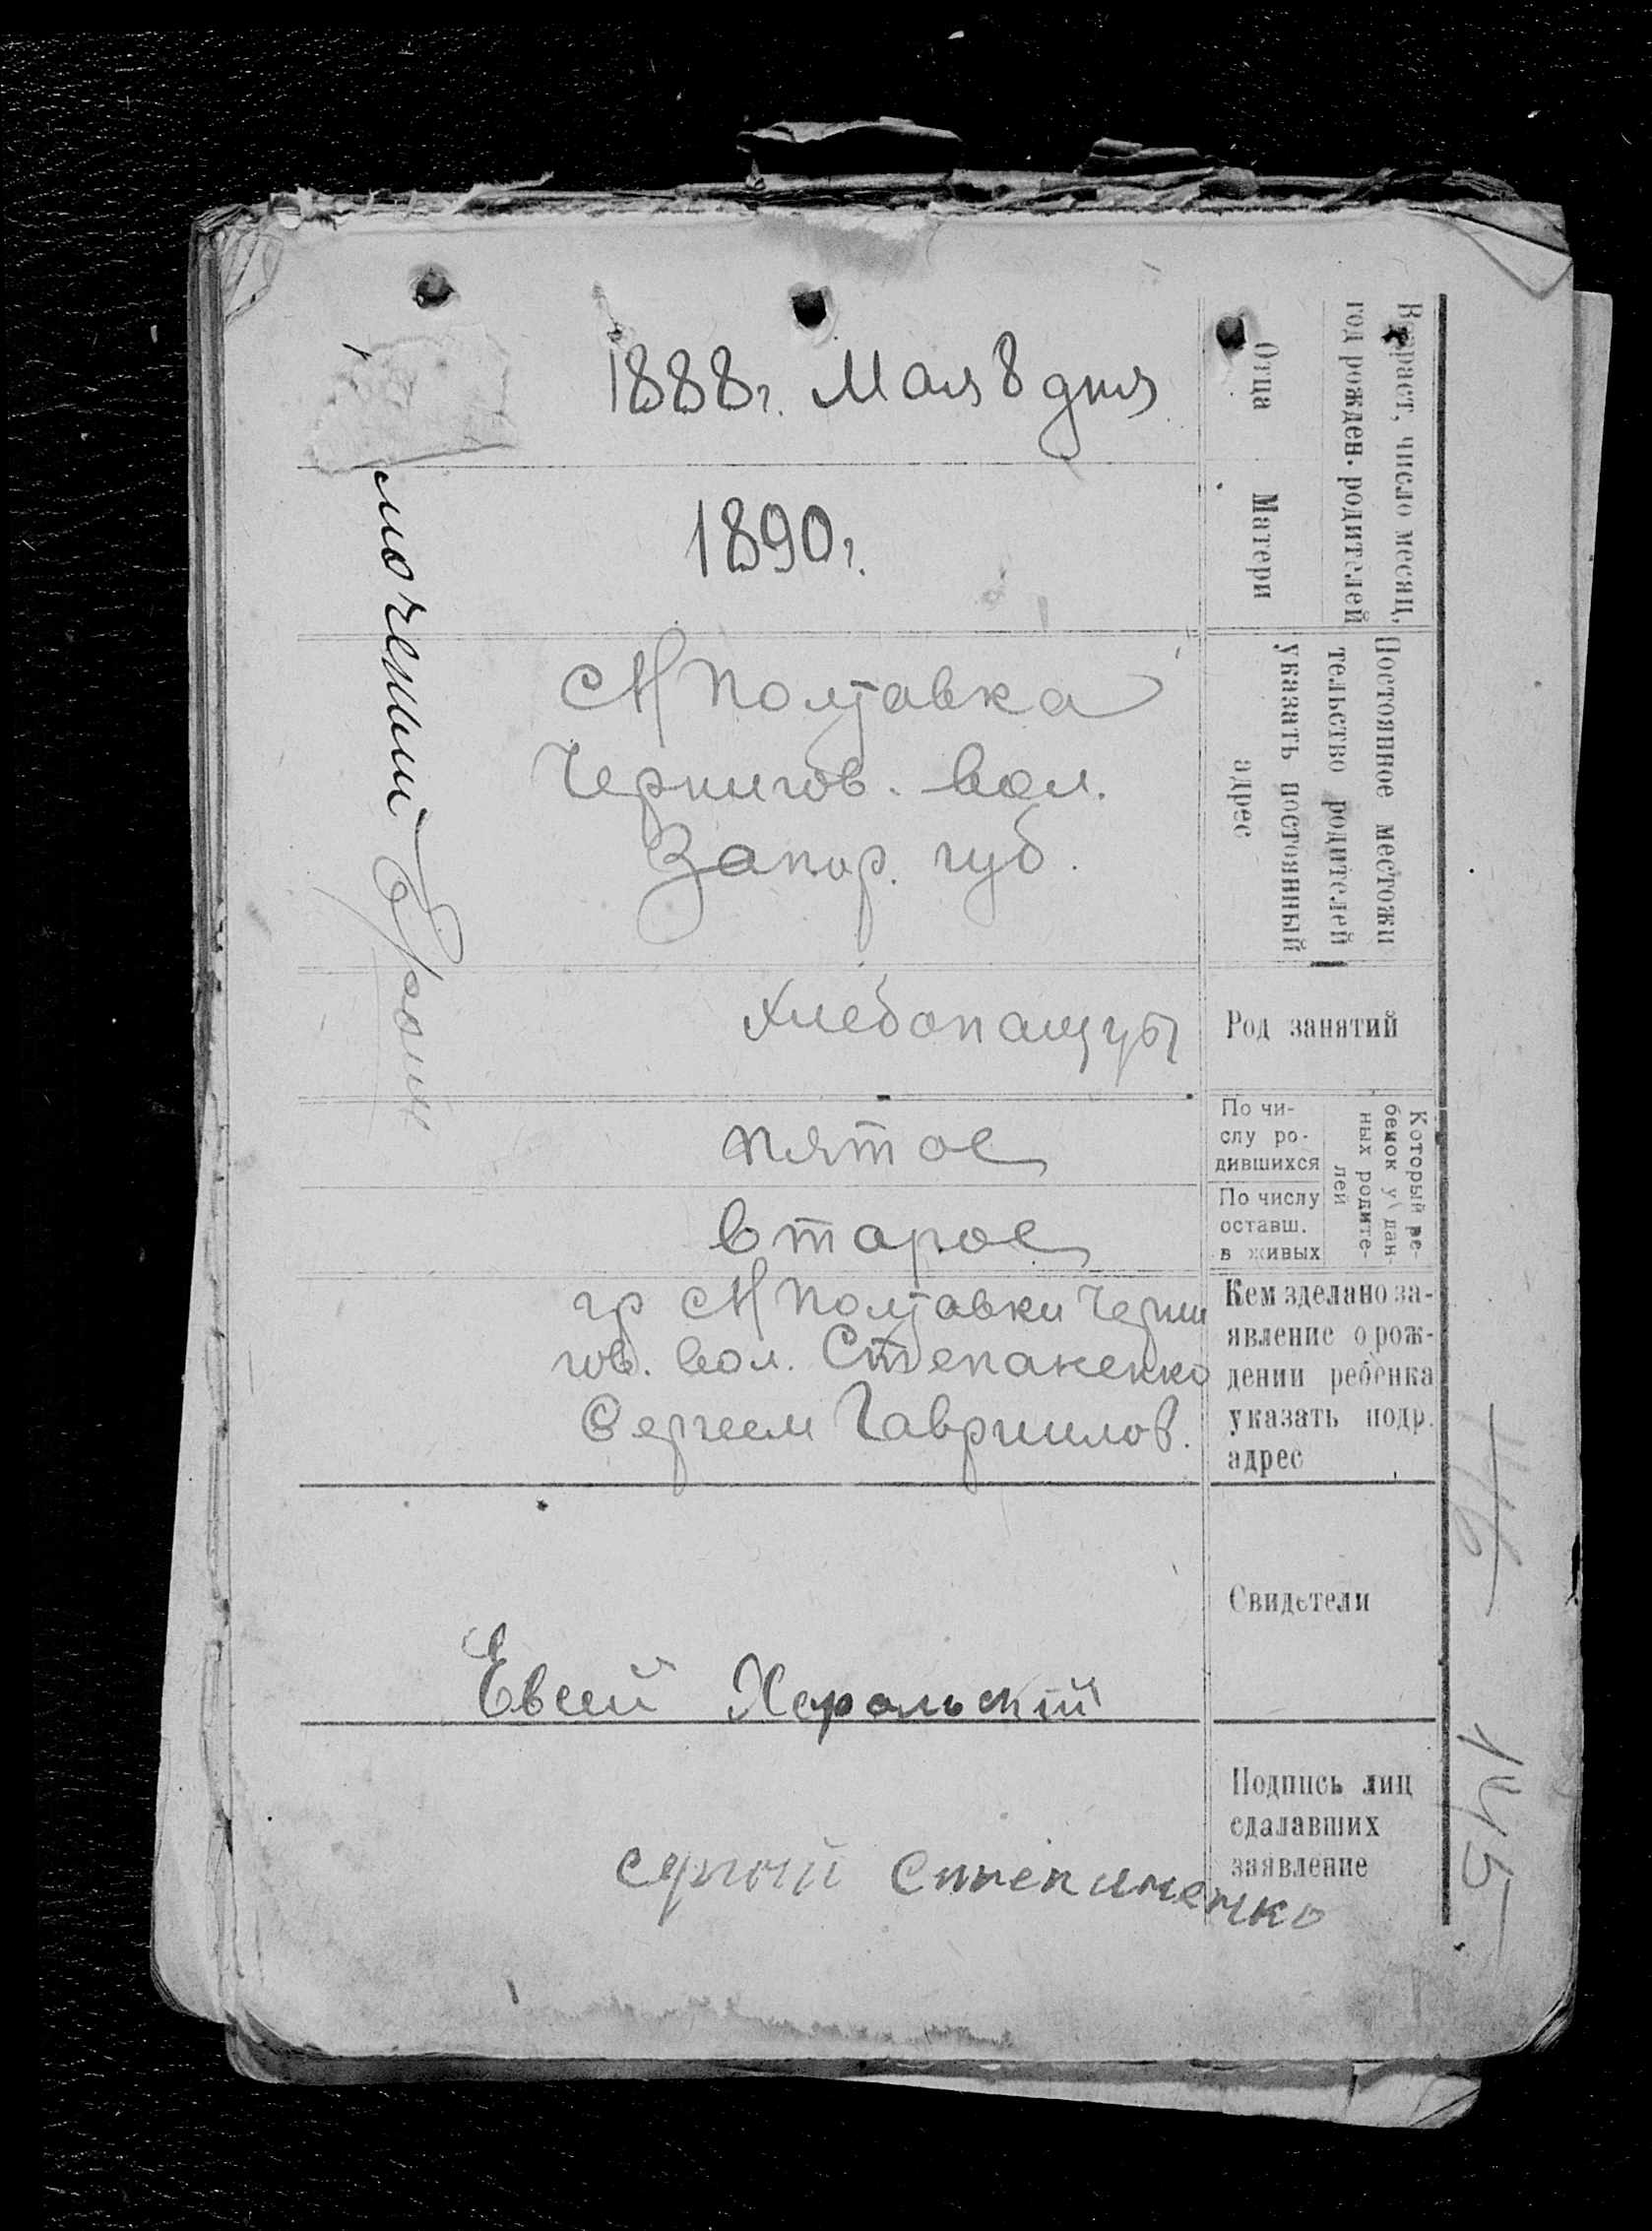 Возраст, число месяц,
год рожден. родителей
Отца
1888г. Мая 8 дня
Матери
1890г.
Постоянное местожи
тельство родителей
указать постоянный
адрес
с М Полтавка
Чернигов. вол.
Запор. губ.
Род занятий
Хлебопащцы
Который ре-
бенок у дан-
ных родите-
лей
По чи-
слу ро-
дившихся
пятое
По числу
оставш.
в живых
второе
Кем зделано за-
явление о рож-
дении ребенка
указать подр.
адрес
гр с М Полтавки Черни
гов. вол. Степаненко
Сергеем Гавриилов.
Свидетели
Евсей Херольский
Подпись лиц
сдалавших
заявление
Степаненко
146
145